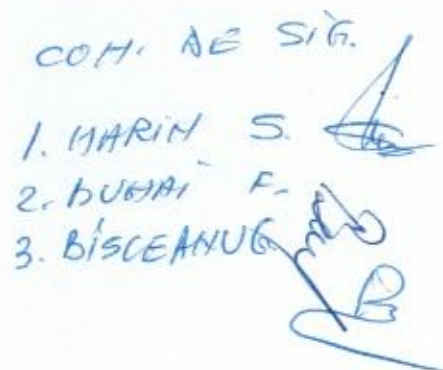 COM. DE SIG.
1. MARIN S.
2. DUHAI F.
3. BISCEANU G.